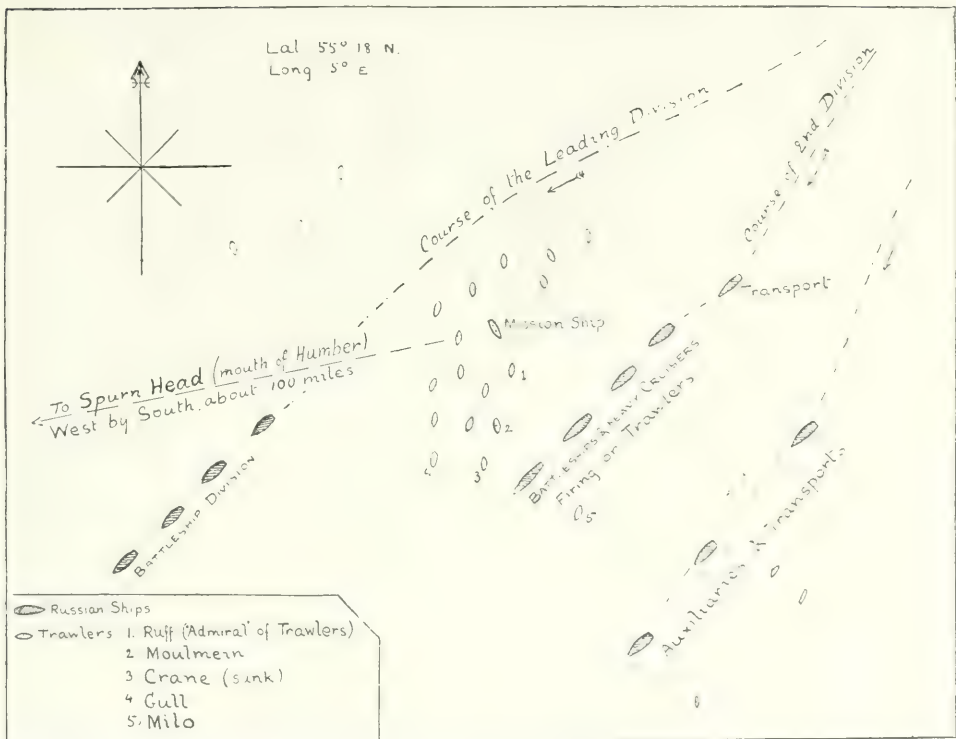 Lat 55° 18 N.
Long 5° E
Course of the Leading Division
Course of End Division
Transport
Mission Ship
To Spurn Head (mouth of Humber)
West by South. about 100 miles
1
2
3
5
BATTLESHIPS & HEAVY CRUISERS
Firing on Trawlers
5
BATTLESHIP DIVISION
Auxiliaries & Transports
Russian Ships
Trawlers 1. Ruff ('Admiral' of Trawlers)
2 Moulmein
3 Crane (sink)
4 Gull
5. Milo